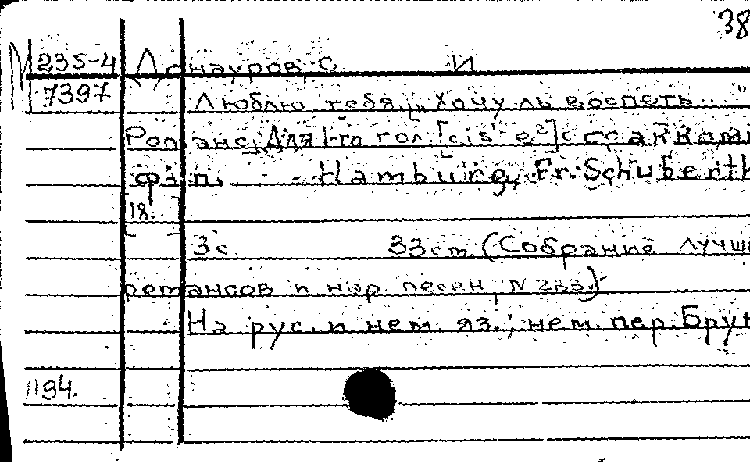 38
М 235-4 Донауров, С. И
7397 Люблю тебя! „Хочу ль воспеть..."
Романс. Для 1-го гол. [cis¹ e²] с
ф-п. - Hamburg, Fr. Schuberth
[18 ]
3 с. 33 см. (Собрание лучш
романсов и нар. песен, N
На рус. и нем. яз.; нем. пер. Брун
1194.